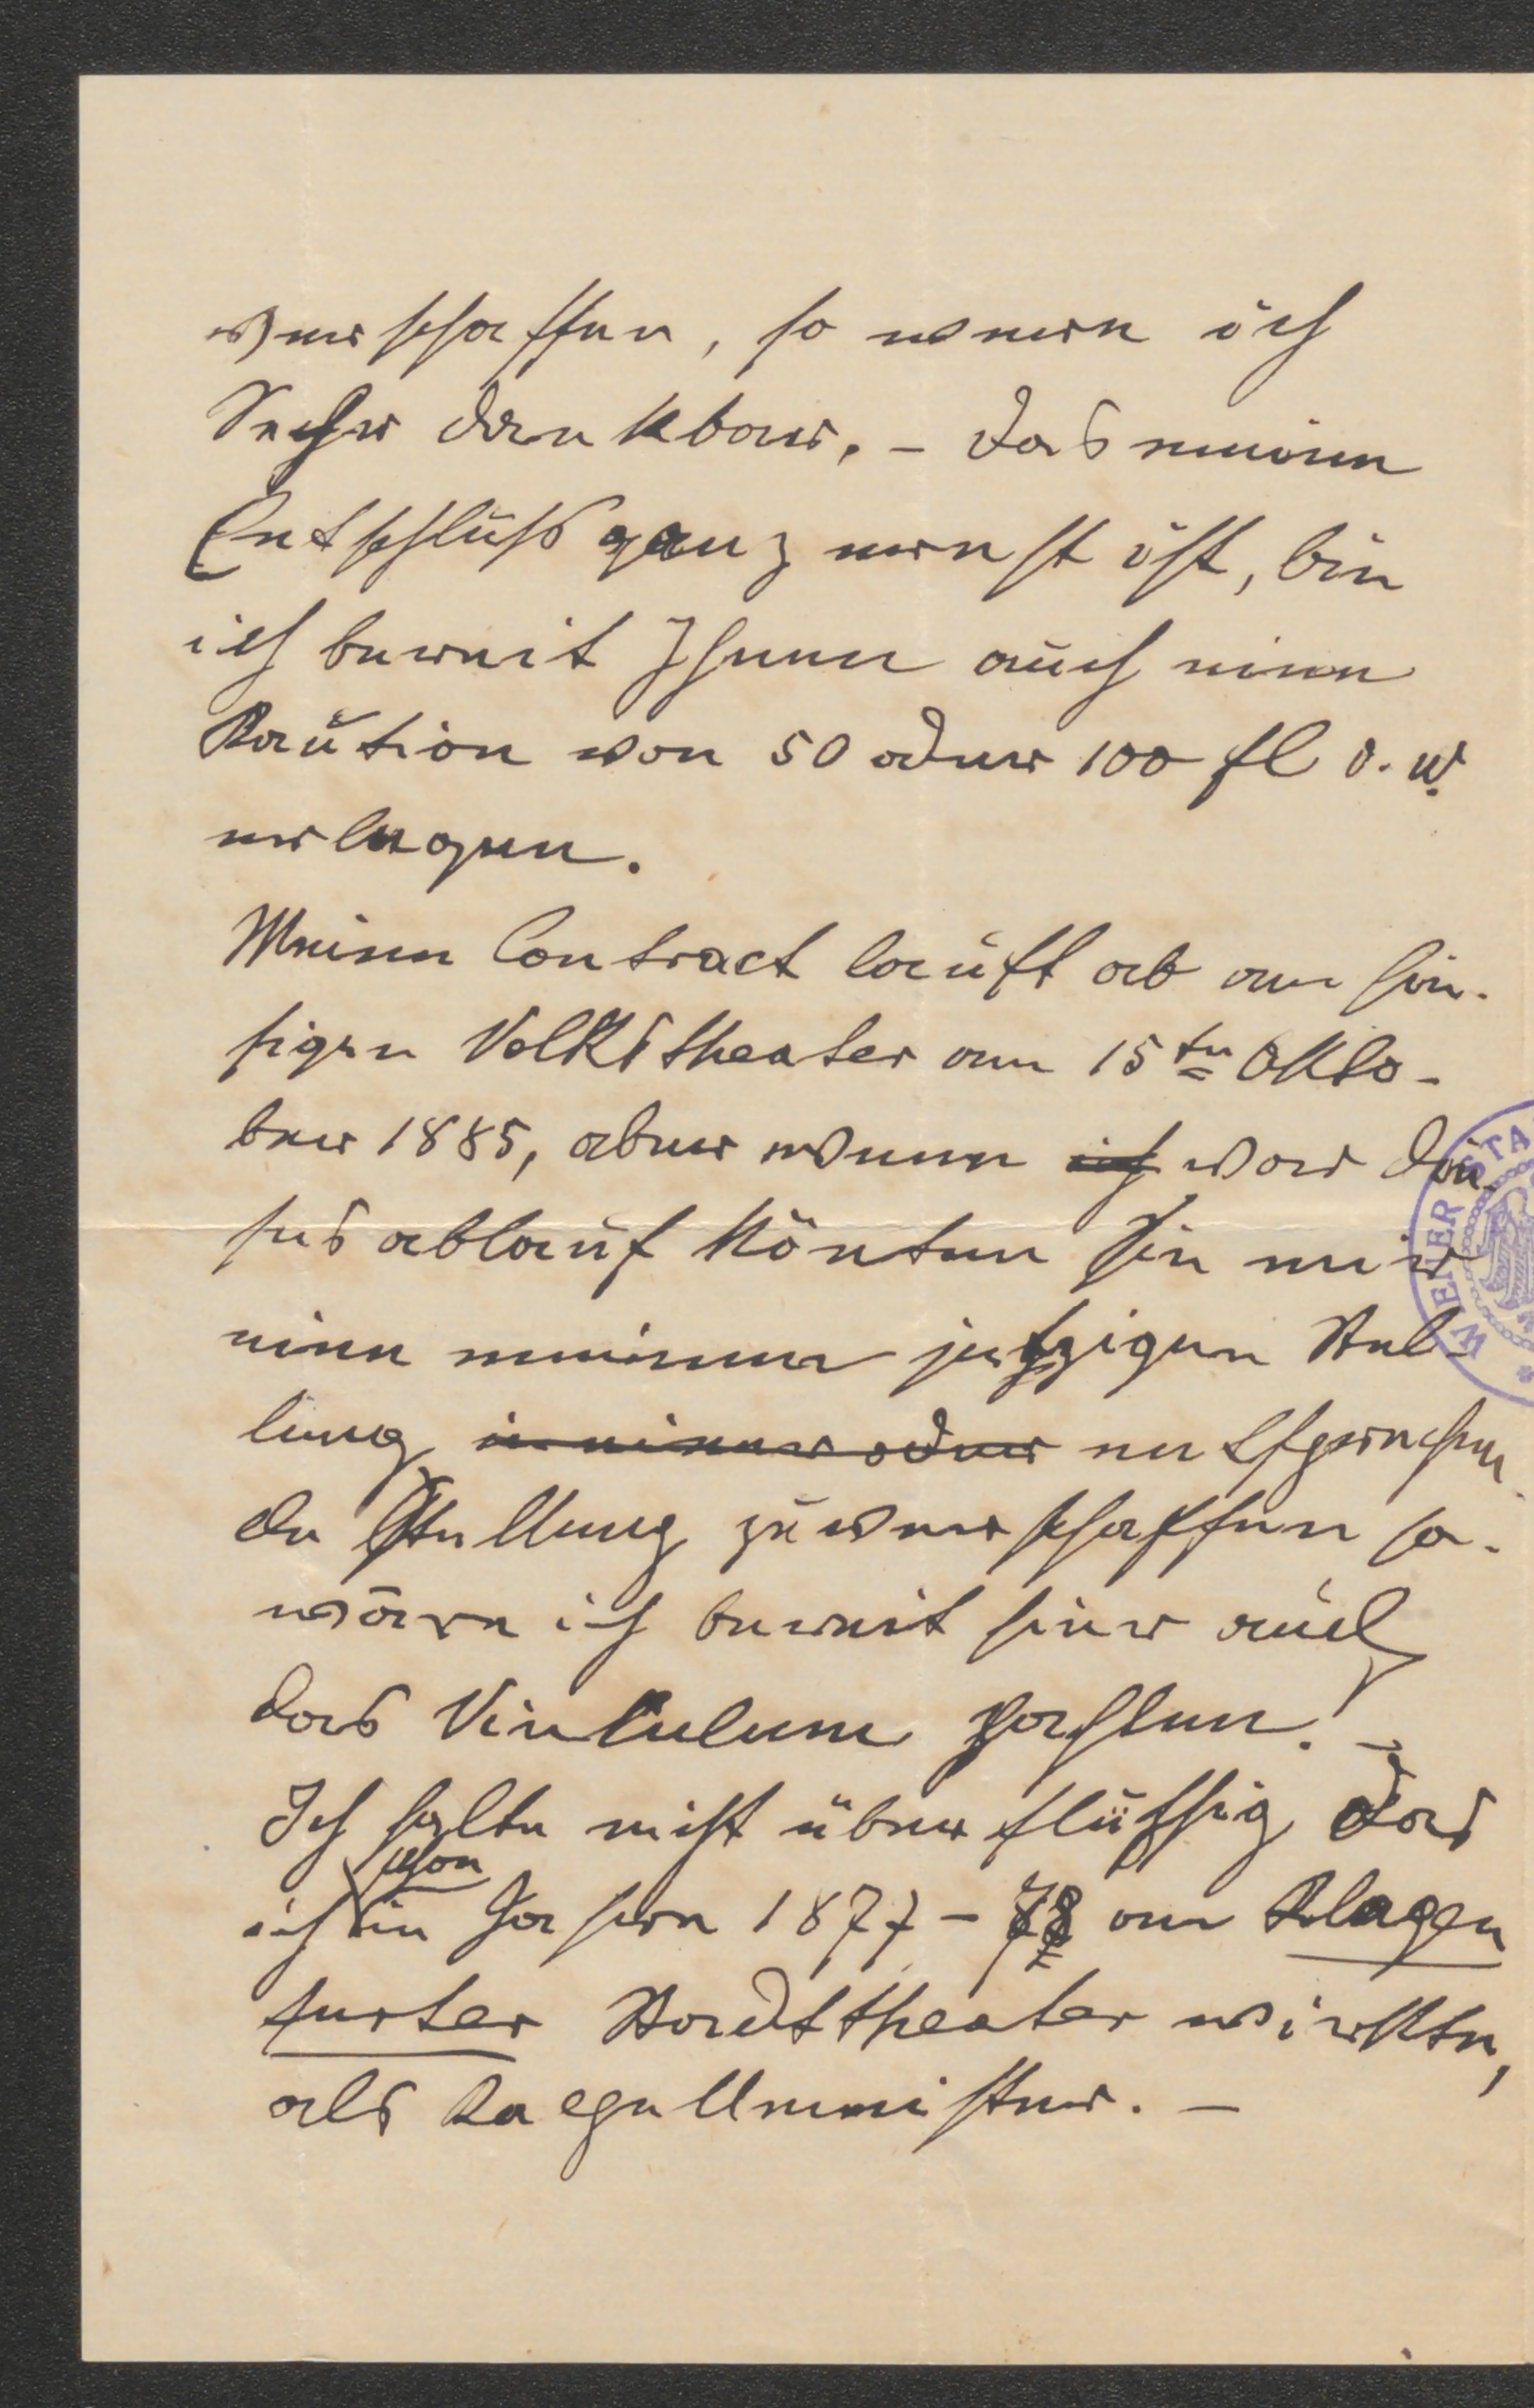 verschaffen, so were ich
Sehr dankbar. – Das meine
Entschluß ganz ernst ist, bin
ich bereit Ihnen auch eine
Kaution von 50 oder 100 fl ö. W.
erlegen.
Meine Contract lauft ab am hie-
sigen Volkstheater am 15ten Okto-
ber 1885, aber wenn ich vor die-
ses ablauf könten Sie mir
eine meiner jetzigen Stel-
lung in einer oder entsprechen-
de Stellung zu verschaffen so-
wäre ich bereit hier auch
das Vinkulum zahlen! –
Ich halte nicht überflüssig das
schon
ich in Jahre 1877 – 78 am Klagen
furter Stadttheater wirkte,
als Kapellmeister. –
WIENER STA